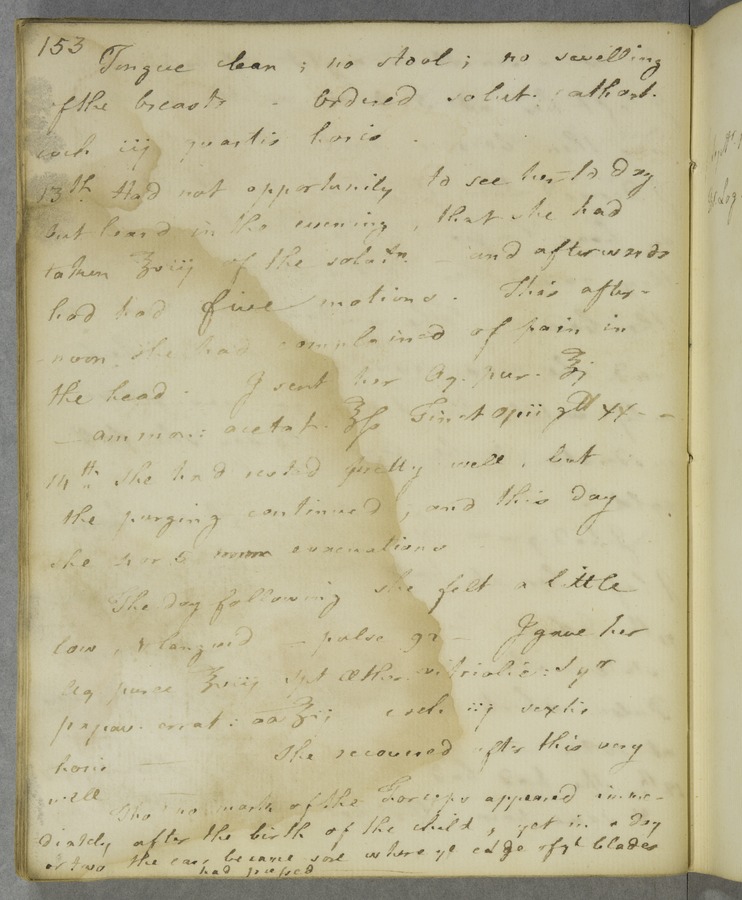 153
Tongue clean; no stool; no swelling
of the breasts - Ordered solut. cathart.
coch iij quartis horis.
13th Had not opportunity to see her to day
but heard in the evening, that she had
taken ℥viij of the solutn. - and afterwards
had had five motions. This after-
noon she had complained of pain in
the head. I sent her Aq. pur. ℥j
- ammon: acetat. ℥ss Tinct opii gtt xx -
14th She had rested pretty well, but
the purging continued, and this day
she had 5 evacuations
The day following she felt a little
low, & languid - pulse 92 - I gave her
Aq puræ ℥viij Spt Æther. vitriolic: Syr
papav. errat: aa ʒij coch iij sextis
horis - She recovered after this very
well
Tho' no mark of the Forceps appeared imme-
diately after the birth of the child, yet in a day
or two the ear became sore where ye edge of ye blades
had pressed